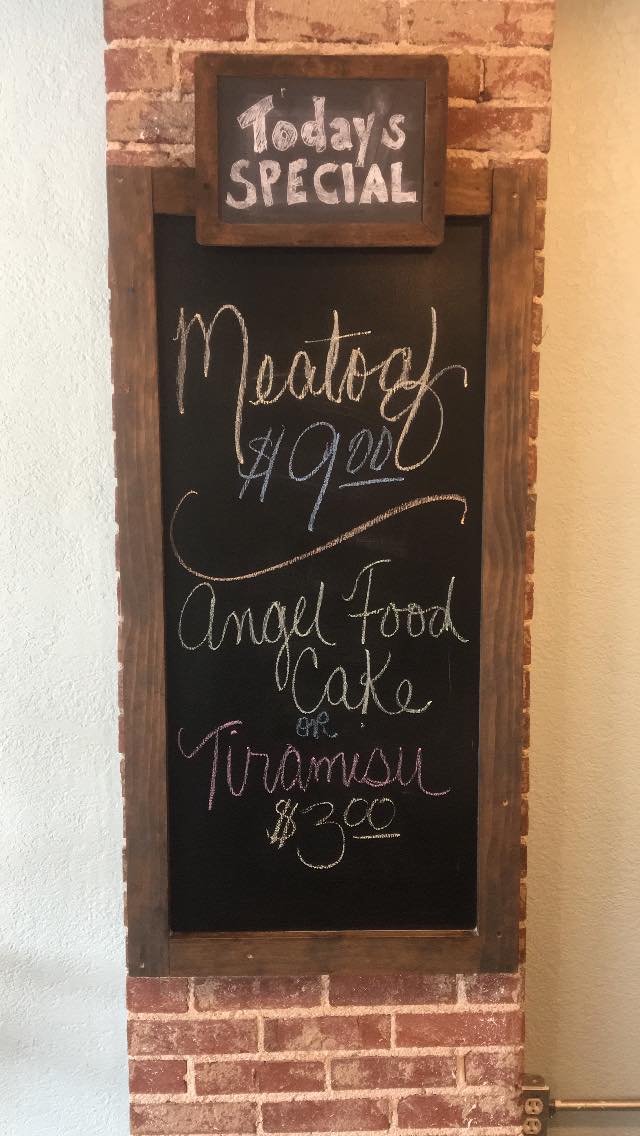 Today's
SPECIAL
Meatoaf
$9.00
Angel Food
Cake
OR
Tiramisu
$3.00